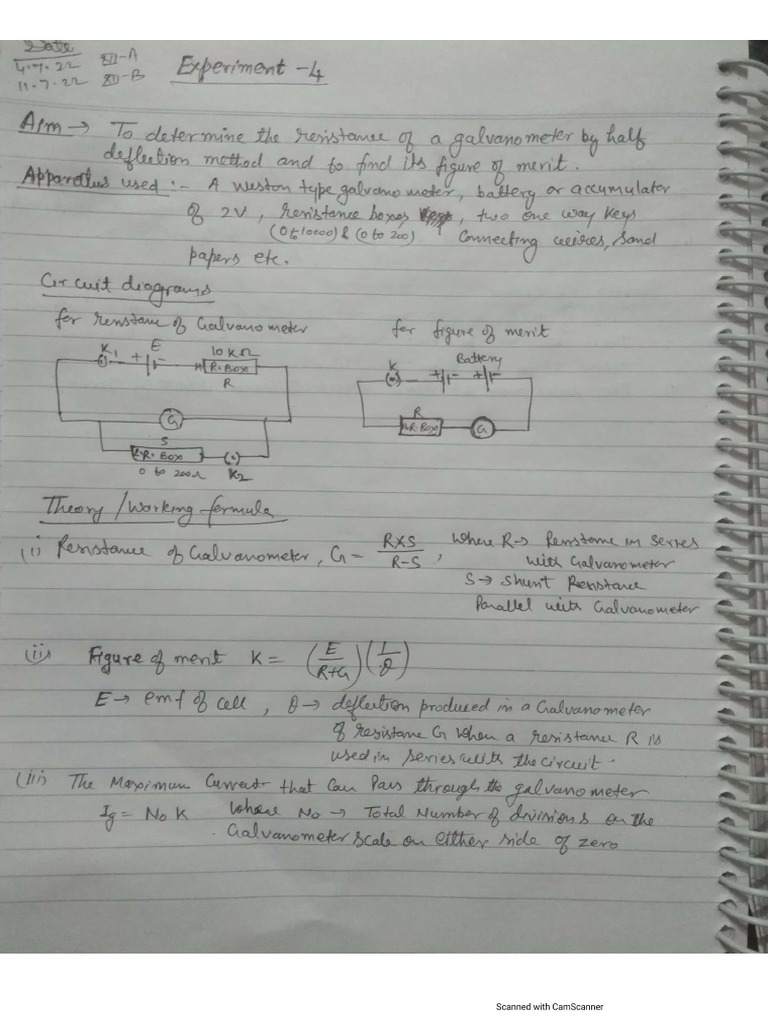 Date
4.7.22 XII-A
11.7.22 XII-B
Experiment - 4
Aim → To determine the resistance of a galvanometer by half
deflection method and to find its figure of merit.
Apparatus used :- A Weston type galvanometer, battery or accumulater
of 2V, resistance boxes, two one way keys
(0 to 10000) & (0 to 200) Connecting wires, Sand
papers etc.
Circuit diagrams
for resistance of Galvanometer
for figure of merit
K1 + E - 10 kΩ
R. Box
R
G
S
R. Box
0 to 200Ω K2
Battery
K + - + -
R
R. Box G
Theory / Working formula
(i) Resistance of Galvanometer, G = R×S / R-S , Where R → Resistance in series
with Galvanometer
S → Shunt Resistance
Parallel with Galvanometer
(ii) Figure of merit K = (E / R+G) (1 / θ)
E → emf of cell, θ → deflection produced in a Galvanometer
of resistance G when a resistance R is
used in series with the circuit.
(iii) The Maximum Current that Can Pass through the galvanometer
Ig = No K Where No → Total Number of divisions on the
Galvanometer scale on either side of zero
Scanned with CamScanner